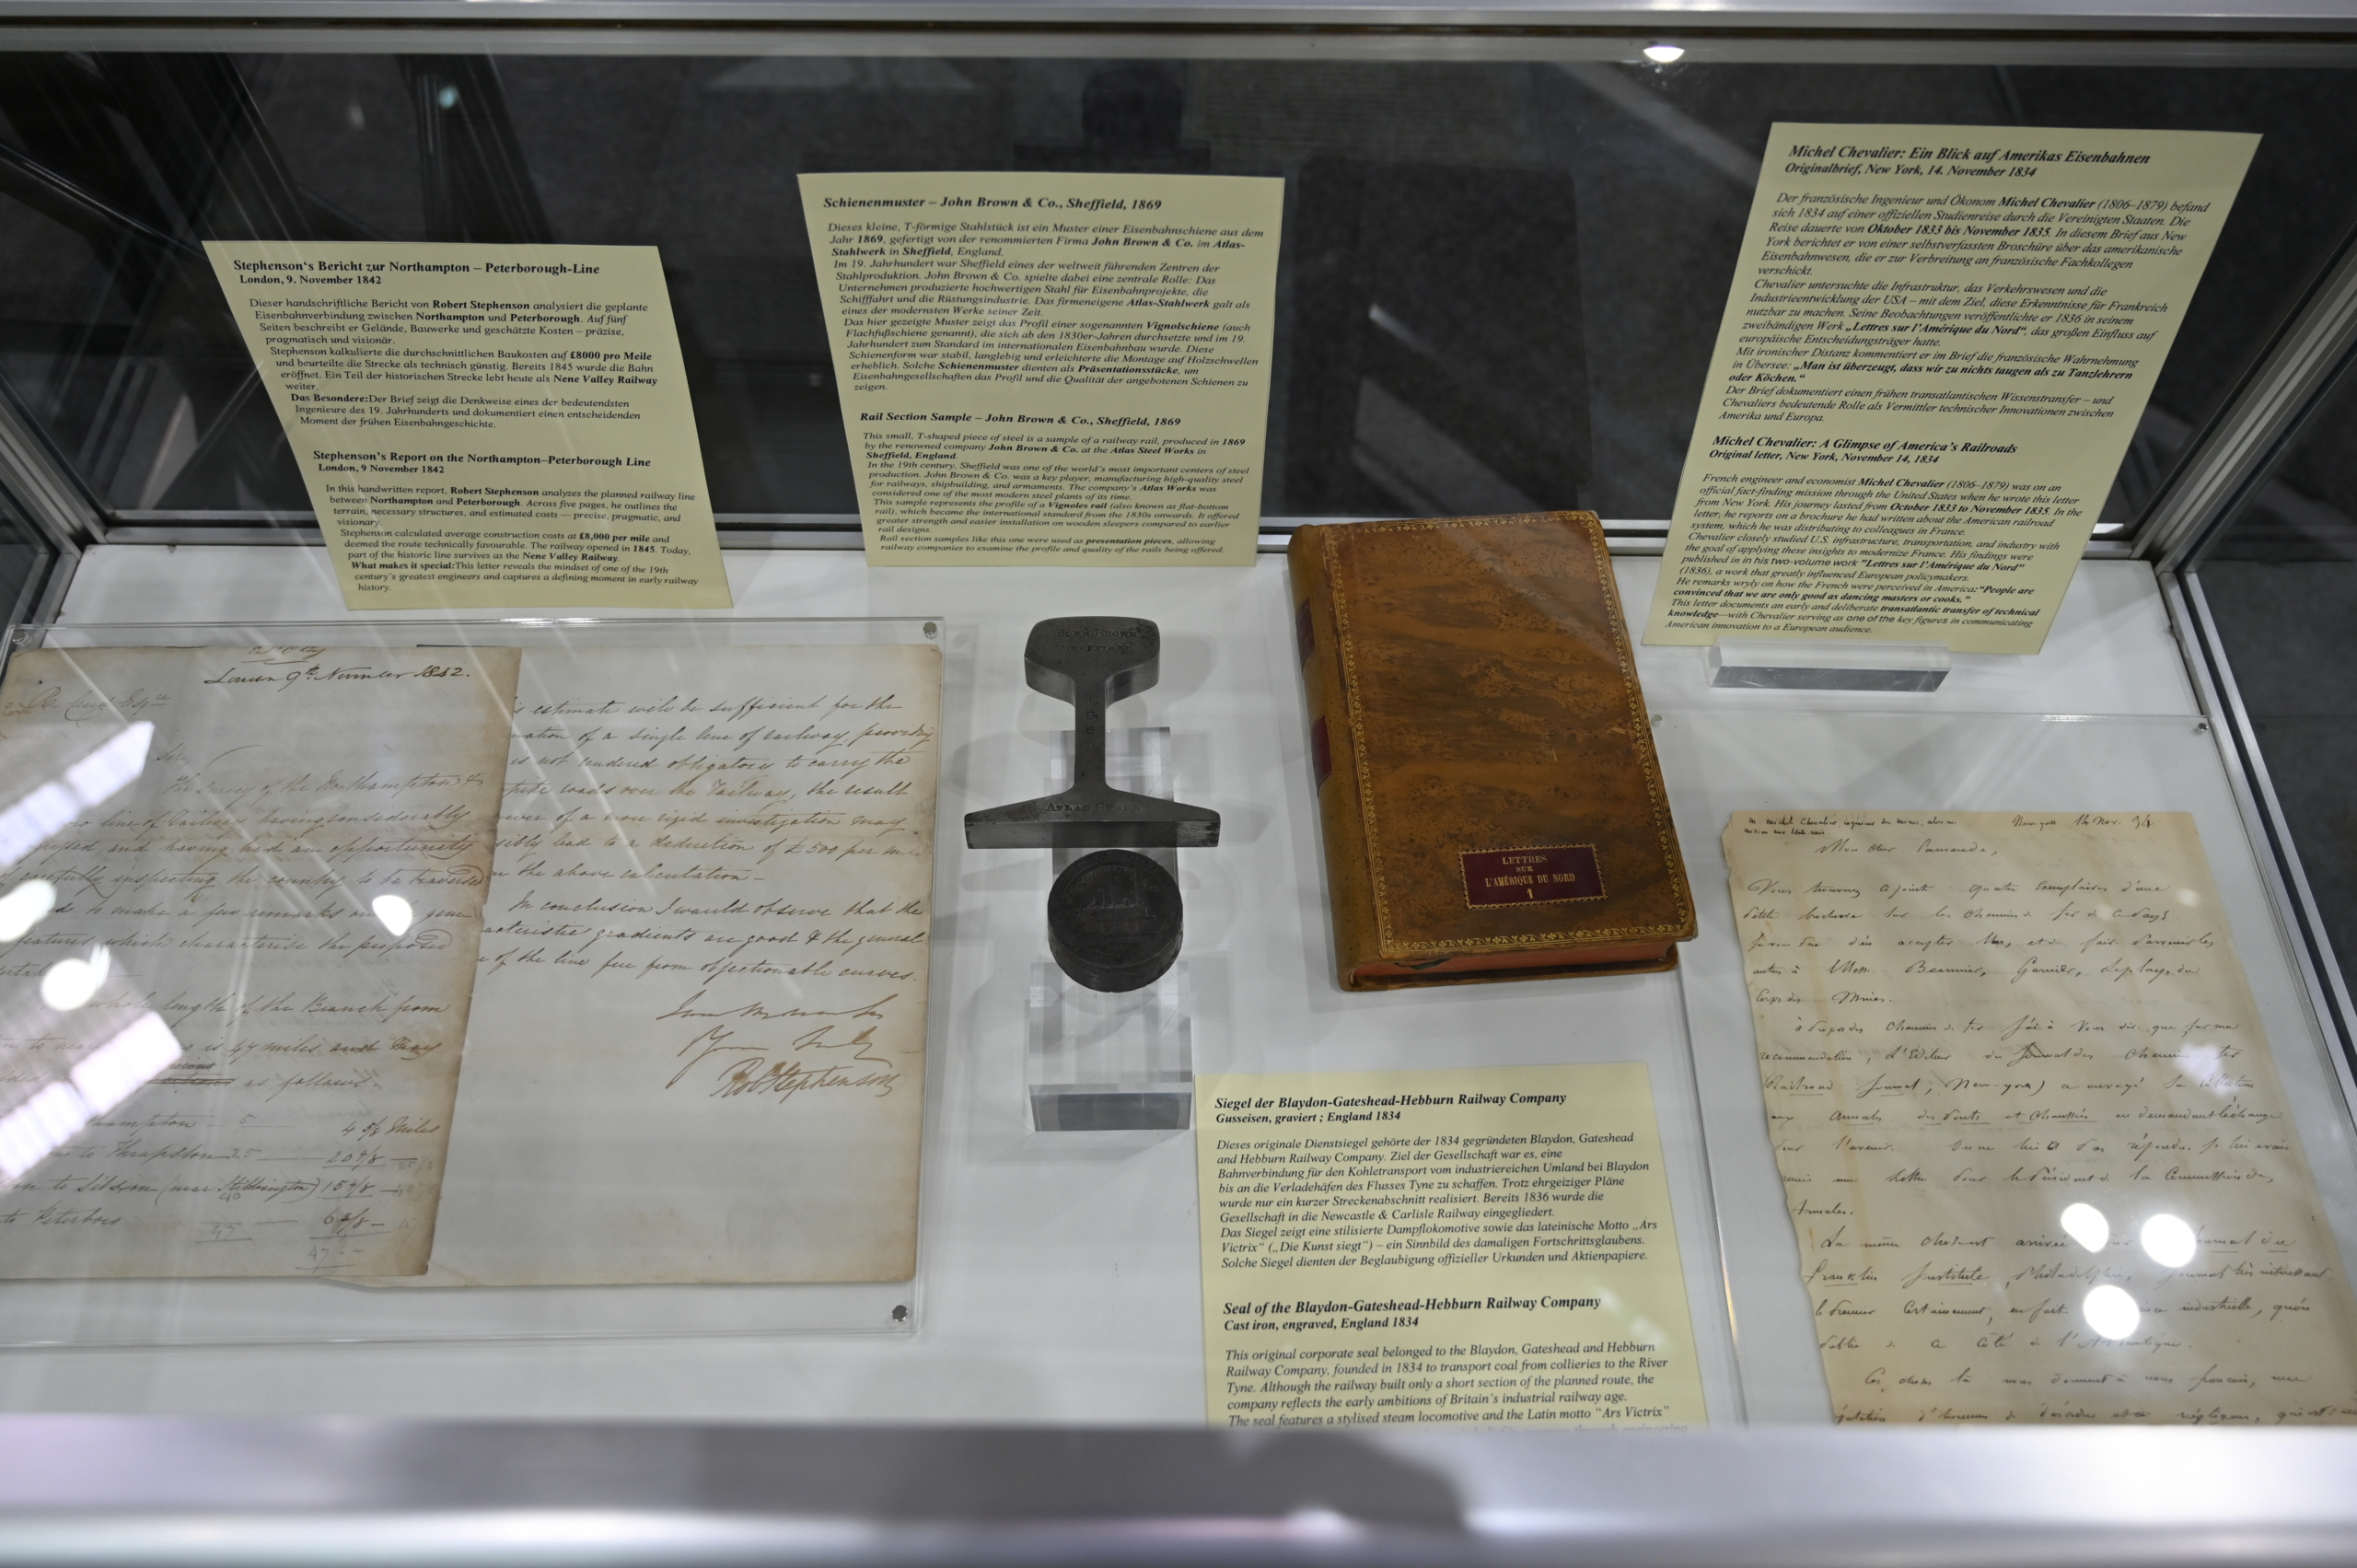 Stephenson's Bericht zur Northampton – Peterborough-Line
London, 9. November 1842
Dieser handschriftliche Bericht von Robert Stephenson analysiert die geplante
Eisenbahnverbindung zwischen Northampton und Peterborough. Auf fünf
Seiten beschreibt er Gelände, Bauwerke und geschätzte Kosten – präzise,
pragmatisch und visionär.
Stephenson kalkulierte die durchschnittlichen Baukosten auf £8000 pro Meile
und beurteilte die Strecke als technisch günstig. Bereits 1845 wurde die Bahn
eröffnet. Ein Teil der historischen Strecke lebt heute als Nene Valley Railway
weiter.
Das Besondere:Der Brief zeigt die Denkweise eines der bedeutendsten
Ingenieure des 19. Jahrhunderts und dokumentiert einen entscheidenden
Moment der frühen Eisenbahngeschichte.
Stephenson's Report on the Northampton–Peterborough Line
London, 9 November 1842
In this handwritten report, Robert Stephenson analyzes the planned railway line
between Northampton and Peterborough. Across five pages, he outlines the
terrain, necessary structures, and estimated costs — precise, pragmatic, and
visionary.
Stephenson calculated average construction costs at £8,000 per mile and
deemed the route technically favourable. The railway opened in 1845. Today,
part of the historic line survives as the Nene Valley Railway.
What makes it special:This letter reveals the mindset of one of the 19th
century's greatest engineers and captures a defining moment in early railway
history.
Schienenmuster – John Brown & Co., Sheffield, 1869
Dieses kleine, T-förmige Stahlstück ist ein Muster einer Eisenbahnschiene aus dem
Jahr 1869, gefertigt von der renommierten Firma John Brown & Co. im Atlas-
Stahlwerk in Sheffield, England.
Im 19. Jahrhundert war Sheffield eines der weltweit führenden Zentren der
Stahlproduktion. John Brown & Co. spielte dabei eine zentrale Rolle: Das
Unternehmen produzierte hochwertigen Stahl für Eisenbahnprojekte, die
Schifffahrt und die Rüstungsindustrie. Das firmeneigene Atlas-Stahlwerk galt als
eines der modernsten Werke seiner Zeit.
Das hier gezeigte Muster zeigt das Profil einer sogenannten Vignolschiene (auch
Flachfußschiene genannt), die sich ab den 1830er-Jahren durchsetzte und im 19.
Jahrhundert zum Standard im internationalen Eisenbahnbau wurde. Diese
Schienenform war stabil, langlebig und erleichterte die Montage auf Holzschwellen
erheblich. Solche Schienenmuster dienten als Präsentationsstücke, um
Eisenbahngesellschaften das Profil und die Qualität der angebotenen Schienen zu
zeigen.
Rail Section Sample – John Brown & Co., Sheffield, 1869
This small, T-shaped piece of steel is a sample of a railway rail, produced in 1869
by the renowned company John Brown & Co. at the Atlas Steel Works in
Sheffield, England.
In the 19th century, Sheffield was one of the world's most important centers of steel
production. John Brown & Co. was a key player, manufacturing high-quality steel
for railways, shipbuilding, and armaments. The company's Atlas Works was
considered one of the most modern steel plants of its time.
This sample represents the profile of a Vignoles rail (also known as flat-bottom
rail), which became the international standard from the 1830s onwards. It offered
greater strength and easier installation on wooden sleepers compared to earlier
rail designs.
Rail section samples like this one were used as presentation pieces, allowing
railway companies to examine the profile and quality of the rails being offered.
Michel Chevalier: Ein Blick auf Amerikas Eisenbahnen
Originalbrief, New York, 14. November 1834
Der französische Ingenieur und Ökonom Michel Chevalier (1806–1879) befand
sich 1834 auf einer offiziellen Studienreise durch die Vereinigten Staaten. Die
Reise dauerte von Oktober 1833 bis November 1835. In diesem Brief aus New
York berichtet er von einer selbstverfassten Broschüre über das amerikanische
Eisenbahnwesen, die er zur Verbreitung an französische Fachkollegen
verschickt.
Chevalier untersuchte die Infrastruktur, das Verkehrswesen und die
Industrieentwicklung der USA – mit dem Ziel, diese Erkenntnisse für Frankreich
nutzbar zu machen. Seine Beobachtungen veröffentlichte er 1836 in seinem
zweibändigen Werk „Lettres sur l'Amérique du Nord“, das großen Einfluss auf
europäische Entscheidungsträger hatte.
Mit ironischer Distanz kommentiert er im Brief die französische Wahrnehmung
in Übersee: „Man ist überzeugt, dass wir zu nichts taugen als zu Tanzlehrern
oder Köchen.“
Der Brief dokumentiert einen frühen transatlantischen Wissenstransfer – und
Chevaliers bedeutende Rolle als Vermittler technischer Innovationen zwischen
Amerika und Europa.
Michel Chevalier: A Glimpse of America's Railroads
Original letter, New York, November 14, 1834
French engineer and economist Michel Chevalier (1806–1879) was on an
official fact-finding mission through the United States when he wrote this letter
from New York. His journey lasted from October 1833 to November 1835. In the
letter, he reports on a brochure he had written about the American railroad
system, which he was distributing to colleagues in France.
Chevalier closely studied U.S. infrastructure, transportation, and industry with
the goal of applying these insights to modernize France. His findings were
published in in his two-volume work "Lettres sur l'Amérique du Nord"
(1836), a work that greatly influenced European policymakers.
He remarks wryly on how the French were perceived in America:“People are
convinced that we are only good as dancing masters or cooks.”
This letter documents an early and deliberate transatlantic transfer of technical
knowledge—with Chevalier serving as one of the key figures in communicating
American innovation to a European audience.
London 9th November 1842.
Sir,
The Survey of the Northampton &
line of Railway having considerably
and having had an opportunity
carefully inspecting the country to be traversed
to make a few remarks on
features which characterise the proposed
whole length of the Branch from
is 47 miles and may
as follows
4 5/8 Miles
to Thrapston 25 20 4/8
to Sibson (near Stibbington) 15 4/8
40
to Peterboro 6 3/8
47
47
estimate will be sufficient for the
of a single line of railway providing
is not rendered obligatory to carry the
loads over the Railway, the result
of a more rigid investigation may
lead to a deduction of £500 per mile
the above calculation –
In conclusion I would observe that the
gradients are good & the general
of the line free from objectionable curves.
Yours Truly
Rob Stephenson
John Brown
Sheffield
1869
Atlas Steel
LETTRES
SUR
L'AMÉRIQUE DU NORD
1
Siegel der Blaydon-Gateshead-Hebburn Railway Company
Gusseisen, graviert ; England 1834
Dieses originale Dienstsiegel gehörte der 1834 gegründeten Blaydon, Gateshead
and Hebburn Railway Company. Ziel der Gesellschaft war es, eine
Bahnverbindung für den Kohletransport vom industriereichen Umland bei Blaydon
bis an die Verladehäfen des Flusses Tyne zu schaffen. Trotz ehrgeiziger Pläne
wurde nur ein kurzer Streckenabschnitt realisiert. Bereits 1836 wurde die
Gesellschaft in die Newcastle & Carlisle Railway eingegliedert.
Das Siegel zeigt eine stilisierte Dampflokomotive sowie das lateinische Motto „Ars
Victrix“ („Die Kunst siegt“) – ein Sinnbild des damaligen Fortschrittsglaubens.
Solche Siegel dienten der Beglaubigung offizieller Urkunden und Aktienpapiere.
Seal of the Blaydon-Gateshead-Hebburn Railway Company
Cast iron, engraved, England 1834
This original corporate seal belonged to the Blaydon, Gateshead and Hebburn
Railway Company, founded in 1834 to transport coal from collieries to the River
Tyne. Although the railway built only a short section of the planned route, the
company reflects the early ambitions of Britain's industrial railway age.
The seal features a stylised steam locomotive and the Latin motto “Ars Victrix”
M. Michel Chevalier ingénieur des mines,
New-york 14 Nov. 34
Mon cher Camarade,
Vous trouverez ci joint quatre exemplaires d'une
petite brochure sur les chemins de fer de ce pays
accepter un, et de faire parvenir les
autres à Mess. Beaunier, Garnier, Leplay, du
Corps des Mines.
à propos des chemins de fer j'ai à vous dire que sur ma
recommendation, l'Editeur du Journal des Chemins de fer
(Railroad Journal, New-york) a envoyé sa collection
aux Annales des Ponts et Chaussées en demandant l'échange
pour l'avenir. On ne lui a pas répondu.
lettre pour le Président de la Commission des
Annales.
La même chose est arrivée Journal du
Franklin Institute, Philadelphie, Journal très intéressant
le premier certainement, en fait industrielle, qu'on
publie de ce côté de l'Atlantique.